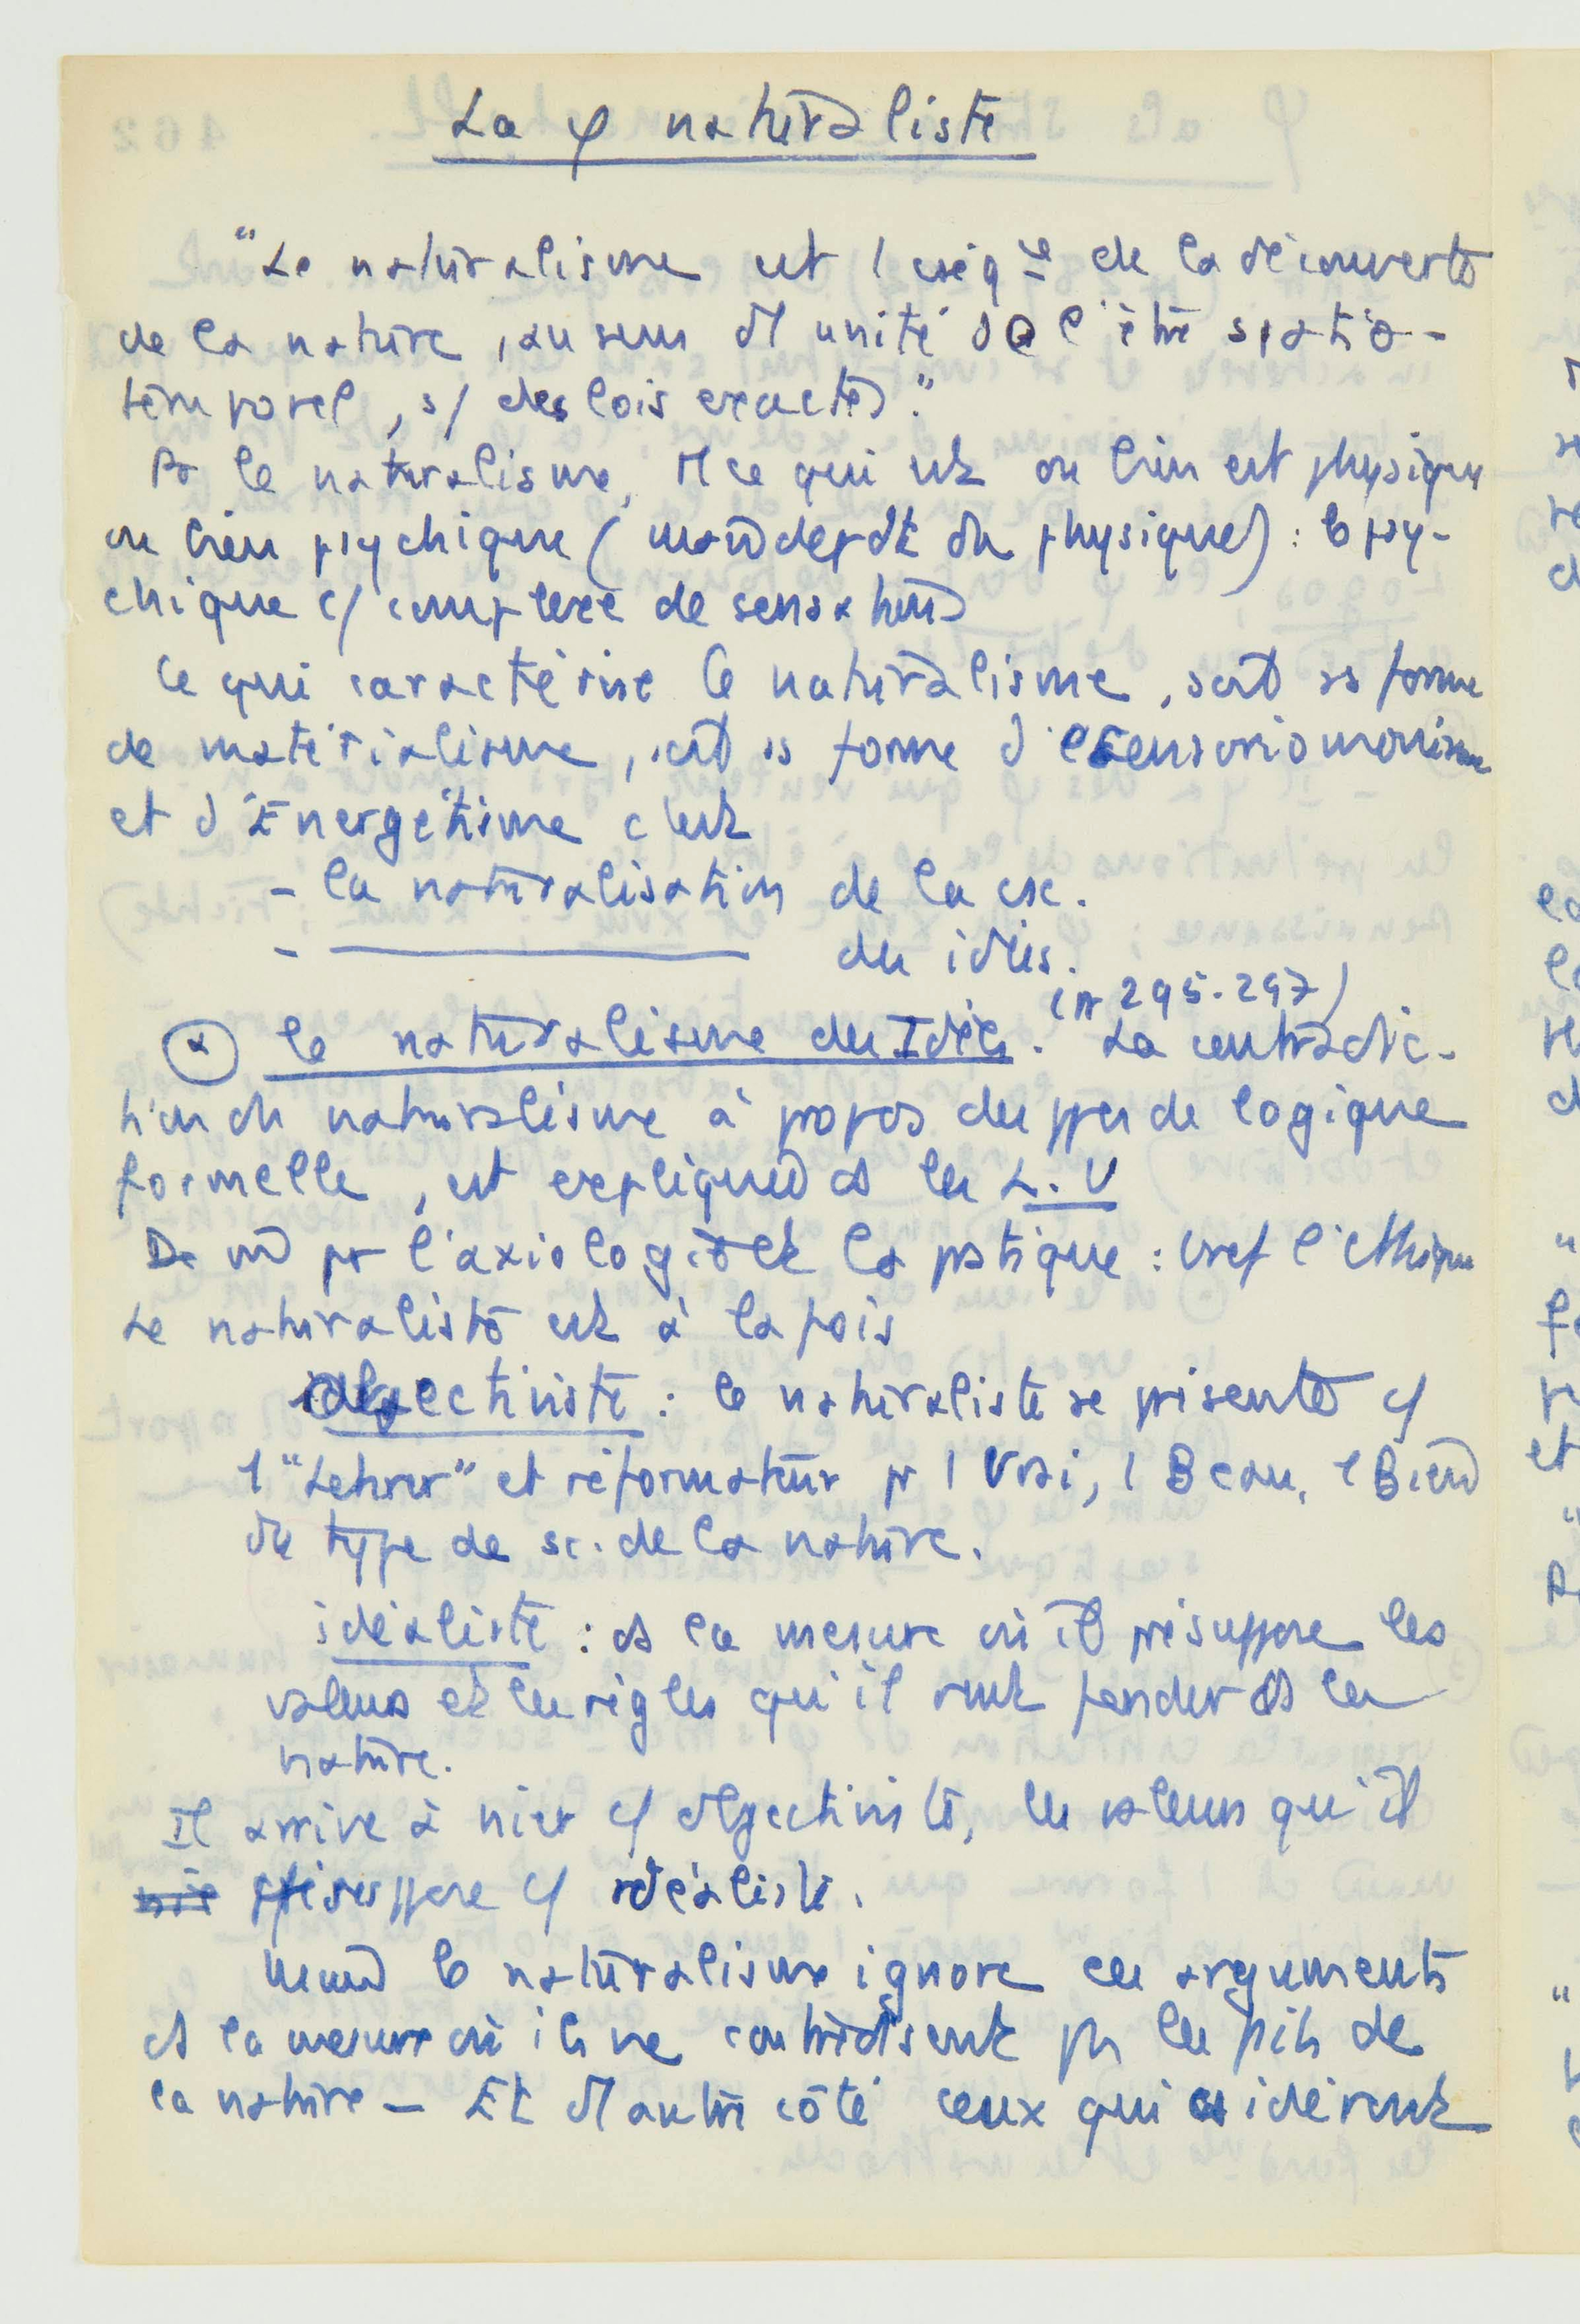 La φ naturaliste
"Le naturalisme est 1 cséq^ce de la découverte
de la nature, au sens d'1 unité de l'être spatio-
temporel, s/ des lois exactes."
Pr le naturalisme, tt ce qui est ou bien est physique
ou bien psychique (mais dépdt du physique) : le psy-
chique c/ complexe de sensations
Ce qui caractérise le naturalisme, soit ss forme
de matérialisme, soit ss forme de sensoriomonisme
et d'Énergétisme c'est
- la naturalisation de la csc.
- ——— des idées.
(pp 295-297)
α le naturalisme des Idées. La contradic-
tion du naturalisme à propos des ppes de logique
formelle, est expliquée ds les L.U
De m̂ pr l'axiologie et la pratique : bref l'éthique
Le naturaliste est à la fois
objectiviste : le naturaliste se présente c/
1 "Lehrer" et réformateur pr 1 Vrai, 1 Beau, 1 Bien
du type de sc. de la nature.
idéaliste : ds la mesure où il présuppose les
valeurs et les règles qu'il veut fonder ds la
nature.
Il arrive à nier c/ objectiviste, les valeurs qu'il
présuppose c/ idéaliste.
le naturalisme ignore ces arguments
ds la mesure où ils ne contredisent pas les faits de
la nature - Et d'1 autre côté ceux qui csidèrent